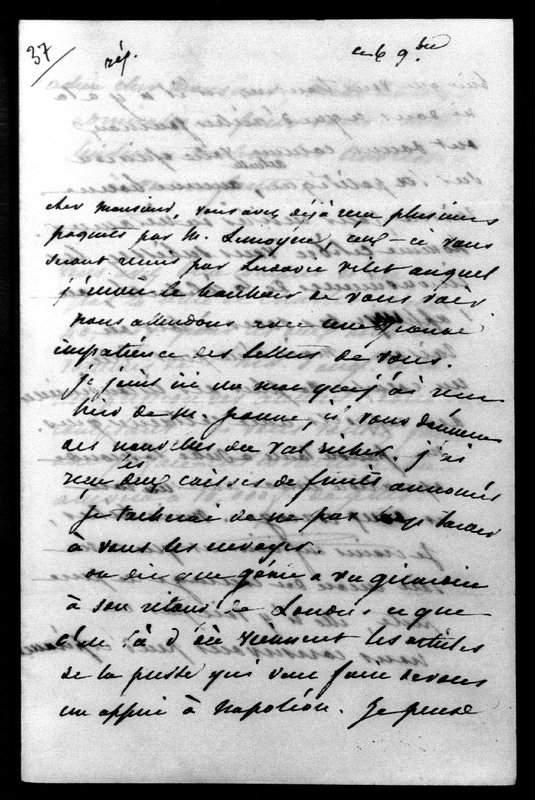 37
rép.
ce 6 9bre
cher monsieur, vous avez déjà reçu plusieurs
paquets par M. Limoyne, ceux-ci vous
seront remis par Ludovic Vitet auquel
j'envie le bonheur de vous voir
nous attendons avec une grande
impatience des lettres de vous.
je joins ici un mot que j'ai reçu
hier de M. , il vous donnera
des nouvelles du val richer. j'ai
reçu les deux caisses de fruits annoncés
je tacherai de ne pas trop tarder
à vous les envoyer.
on dit que génie a vu girardin
à son retour de Londres et que
c'est là d'où viennent les articles
de la presse qui vont faire de vous
un appui à Napoléon. Je pense